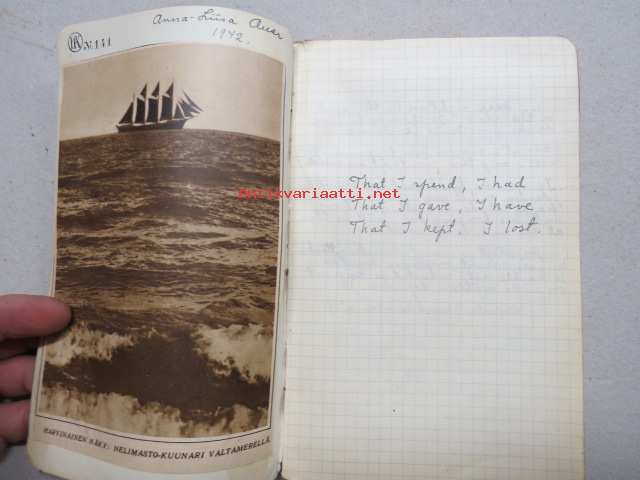 Anna-Liisa Auer
1942.
No 141
Antikvariaatti.net
HARVINAINEN NÄKY: NELIMASTO-KUUNARI VALTAMERELLÄ.
That I spend, I had
That I gave, I have
That I kept, I lost.